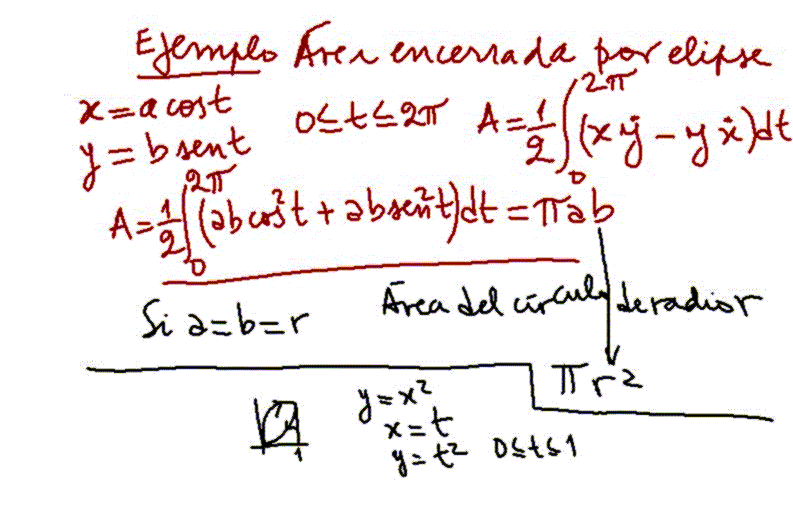 Ejemplo Área encerrada por elipse
x = a cos t
y = b sen t
0 ≤ t ≤ 2π
A = 1/2 ∫₀^2π (x ẏ − y ẋ) dt
A = 1/2 ∫₀^2π (ab cos² t + ab sen² t) dt = π ab
Si a = b = r
Área del círculo de radio r
π r²
y = x²
x = t
y = t² 0 ≤ t ≤ 1
1